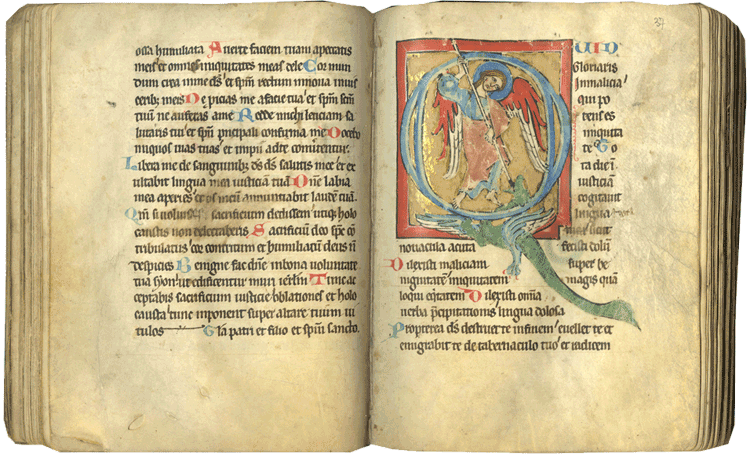 ossa humiliata Auerte faciem tuam apeccatis
meis et omnes iniquitates meas dele Cor mun
dum crea inme ds et spm rectum innoua inuis
ceribz meis Ne picias me afacie tua et spm scm
tuū ne auferas ame Redde michi leticiam sa
lutaris tui et spū pncipali confirma me Docebo
iniquos uias tuas et impii adte conuertentur
Libera me de sanguinibz ds ds salutis mee et ex
ultabit lingua mea iusticiā tuā Dne labia
mea aperies et os meū annuntiabit laudē tuā
Qm si uoluisses sacrificium dedissem utiqz holo
caustis non delectaberis Sacrificiū deo spc cō
tribulatus cor contritum et humiliatū deus n
despicies Benigne fac dne inbona uoluntate
tua syon ut edificentur muri ierlm Tunc ac
ceptabis sacrificium iusticie oblationes et holo
causta tunc inponent super altare tuum ui
tulos Gla patri et filio et spiu sancto.
37
QUID
Gloriaris
Inmalicia
qui po
tens es
iniquita
te To
ta die
iusticiam
cogitauit
lingua
tua sicut
nouacula acuta fecisti dolū
Dilexisti maliciam super be
nignitatem iniquitatem magis quā
loqui eqitatem Dilexisti omnia
uerba pcipitationis lingua dolosa
Propterea ds destruet te infinem euellet te et
emigrabit te de tabernaculo tuo et radicem